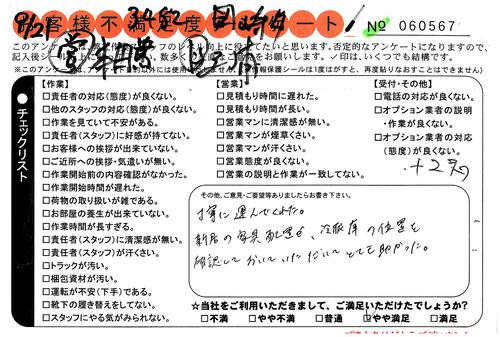 お客様不満足度アンケート!
№ 060567
【作業】
□責任者の対応(態度)が良くない。
□他のスタッフの対応(態度)が良くない。
□作業を見ていて不安がある。
□責任者(スタッフ)に好感が持てない。
□お客様への挨拶が出来ていない。
□ご近所への挨拶・気遣いが無い。
□作業開始前の内容確認がなかった。
□作業開始時間が遅れた。
□荷物の取り扱いが雑である。
□お部屋の養生が出来ていない。
□作業時間が長すぎる。
□責任者(スタッフ)に清潔感が無い。
□責任者(スタッフ)が汗くさい。
□トラックが汚い。
□梱包資材が汚い。
□運転が不安(下手)である。
□靴下の履き替えをしてない。
□スタッフにやる気がみられない。
【営業】
□見積もり時間に遅れた。
□見積もり時間が長い。
□営業マンに清潔感が無い。
□営業マンが煙草くさい。
□営業マンが汗くさい。
□営業態度が良くない。
□営業の説明と作業が一致してない。
【受付・その他】
□電話の対応が良くない。
□オプション業者の説明
・作業が良くない。
□オプション業者の対応
(態度)が良くない。
チェックリスト
その他、ご意見・ご要望等ありましたらお書き下さい。
丁寧に運んでくれた。
新居の家具配置を、冷蔵庫の位置を
確認しておいていただいてとても助かった。
☆当社をご利用いただきまして、ご満足いただけたでしょうか?
□不満 □やや不満 □普通 □やや満足 □満足